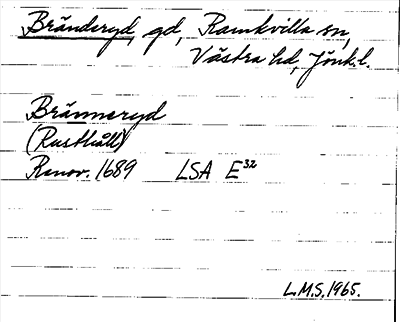 Bränderyd, gd, Ramkvilla sn,
Västra hd, Jönk.l.
Bränneryd
(Rusthåll)
Renov. 1689 LSA E³²
L.M.S. 1965.